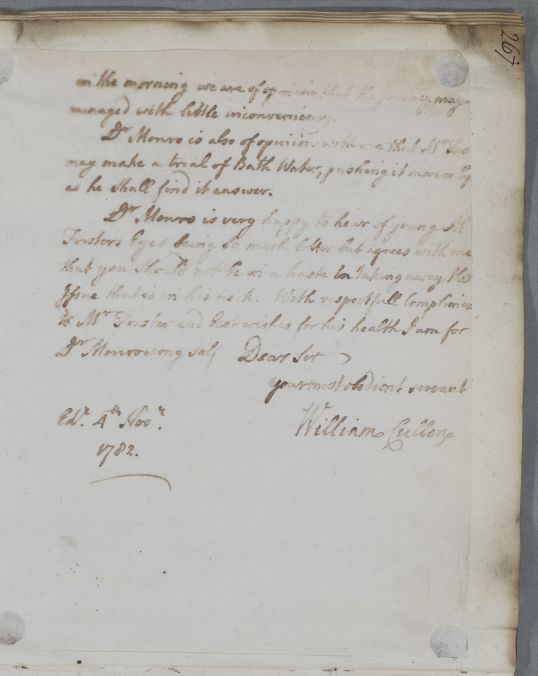 267
in the morning we are of opinion that the journey may
managed with little inconveniency.
Dr Monro is also of opinion with me that Mr
may make a trial of Bath Water, pushing it more or
as he shall find it answer.
Dr Monro is very happy to hear of young Mr
Forsters Eyes being so much better but agrees with me
that you should not be in a haste in taking away the
Issue that is in his neck. With respectfull Complimen
to Mr Forster and best wishes for his health I am for
Dr Monro & my self Dear Sir
your most obedient servant
William Cullen
Edr. 4th Novr.
1782.